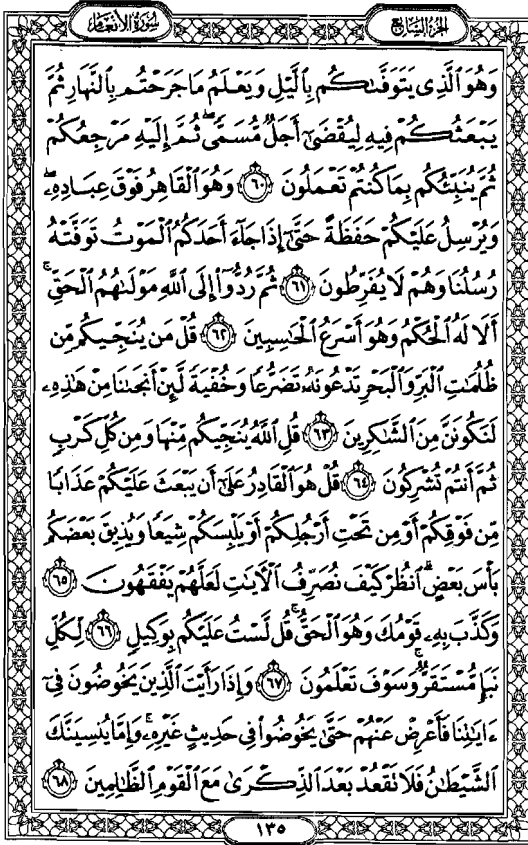 سورة الأنعام
الجزء السابع
وَهُوَ ٱلَّذِى يَتَوَفَّىٰكُم بِٱلَّيْلِ وَيَعْلَمُ مَا جَرَحْتُم بِٱلنَّهَارِ ثُمَّ
يَبْعَثُكُمْ فِيهِ لِيُقْضَىٰٓ أَجَلٌ مُّسَمًّى ۖ ثُمَّ إِلَيْهِ مَرْجِعُكُمْ
ثُمَّ يُنَبِّئُكُم بِمَا كُنتُمْ تَعْمَلُونَ ٦٠ وَهُوَ ٱلْقَاهِرُ فَوْقَ عِبَادِهِۦ ۖ
وَيُرْسِلُ عَلَيْكُمْ حَفَظَةً حَتَّىٰٓ إِذَا جَآءَ أَحَدَكُمُ ٱلْمَوْتُ تَوَفَّتْهُ
رُسُلُنَا وَهُمْ لَا يُفَرِّطُونَ ٦١ ثُمَّ رُدُّوٓا۟ إِلَى ٱللَّهِ مَوْلَىٰهُمُ ٱلْحَقِّ ۚ
أَلَا لَهُ ٱلْحُكْمُ وَهُوَ أَسْرَعُ ٱلْحَـٰسِبِينَ ٦٢ قُلْ مَن يُنَجِّيكُم مِّن
ظُلُمَـٰتِ ٱلْبَرِّ وَٱلْبَحْرِ تَدْعُونَهُۥ تَضَرُّعًا وَخُفْيَةً لَّئِنْ أَنجَىٰنَا مِنْ هَـٰذِهِۦ
لَنَكُونَنَّ مِنَ ٱلشَّـٰكِرِينَ ٦٣ قُلِ ٱللَّهُ يُنَجِّيكُم مِّنْهَا وَمِن كُلِّ كَرْبٍ
ثُمَّ أَنتُمْ تُشْرِكُونَ ٦٤ قُلْ هُوَ ٱلْقَادِرُ عَلَىٰٓ أَن يَبْعَثَ عَلَيْكُمْ عَذَابًا
مِّن فَوْقِكُمْ أَوْ مِن تَحْتِ أَرْجُلِكُمْ أَوْ يَلْبِسَكُمْ شِيَعًا وَيُذِيقَ بَعْضَكُم
بَأْسَ بَعْضٍ ۗ ٱنظُرْ كَيْفَ نُصَرِّفُ ٱلْـَٔايَـٰتِ لَعَلَّهُمْ يَفْقَهُونَ ٦٥
وَكَذَّبَ بِهِۦ قَوْمُكَ وَهُوَ ٱلْحَقُّ ۚ قُل لَّسْتُ عَلَيْكُم بِوَكِيلٍ ٦٦ لِّكُلِّ
نَبَإٍ مُّسْتَقَرٌّ ۚ وَسَوْفَ تَعْلَمُونَ ٦٧ وَإِذَا رَأَيْتَ ٱلَّذِينَ يَخُوضُونَ فِىٓ
ءَايَـٰتِنَا فَأَعْرِضْ عَنْهُمْ حَتَّىٰ يَخُوضُوا۟ فِى حَدِيثٍ غَيْرِهِۦ ۚ وَإِمَّا يُنسِيَنَّكَ
ٱلشَّيْطَـٰنُ فَلَا تَقْعُدْ بَعْدَ ٱلذِّكْرَىٰ مَعَ ٱلْقَوْمِ ٱلظَّـٰلِمِينَ ٦٨
١٣٥